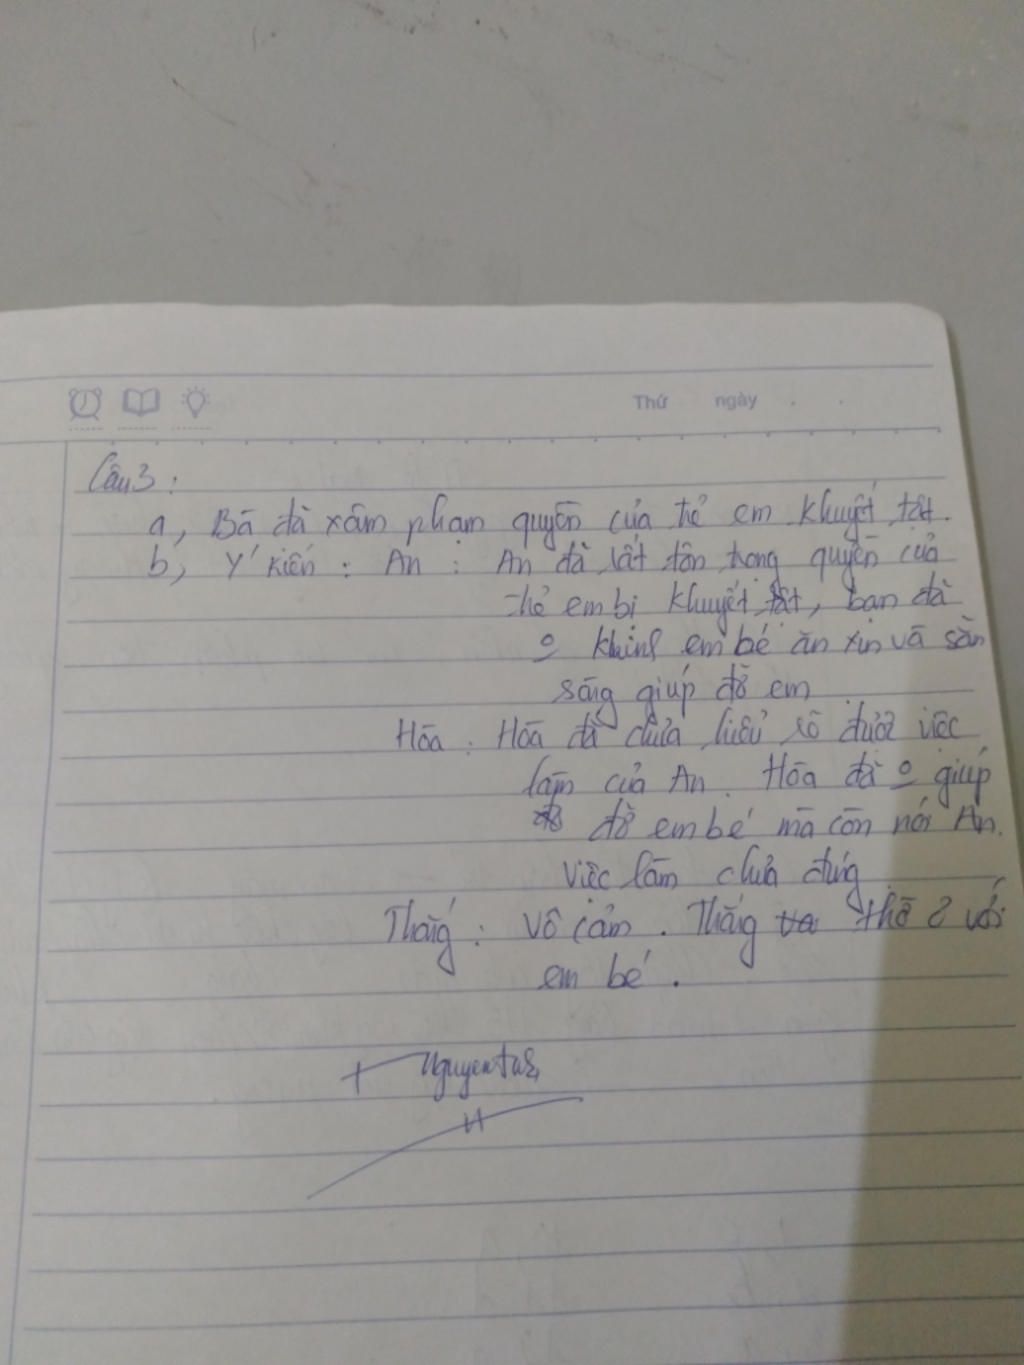 Thứ ngày
Câu 3:
a, Bà đã xâm phạm quyền của trẻ em khuyết tật.
b, Ý kiến: An: An đã rất tôn trọng quyền của
trẻ em bị khuyết tật, bạn đã
o khinh em bé ăn xin và sẵn
sàng giúp đỡ em
Hòa: Hòa đã chưa hiểu rõ được việc
làm của An. Hòa đã o giúp
đỡ em bé mà còn nói An.
việc làm chưa đúng
Thắng: Vô cảm. Thắng thờ ơ với
em bé.